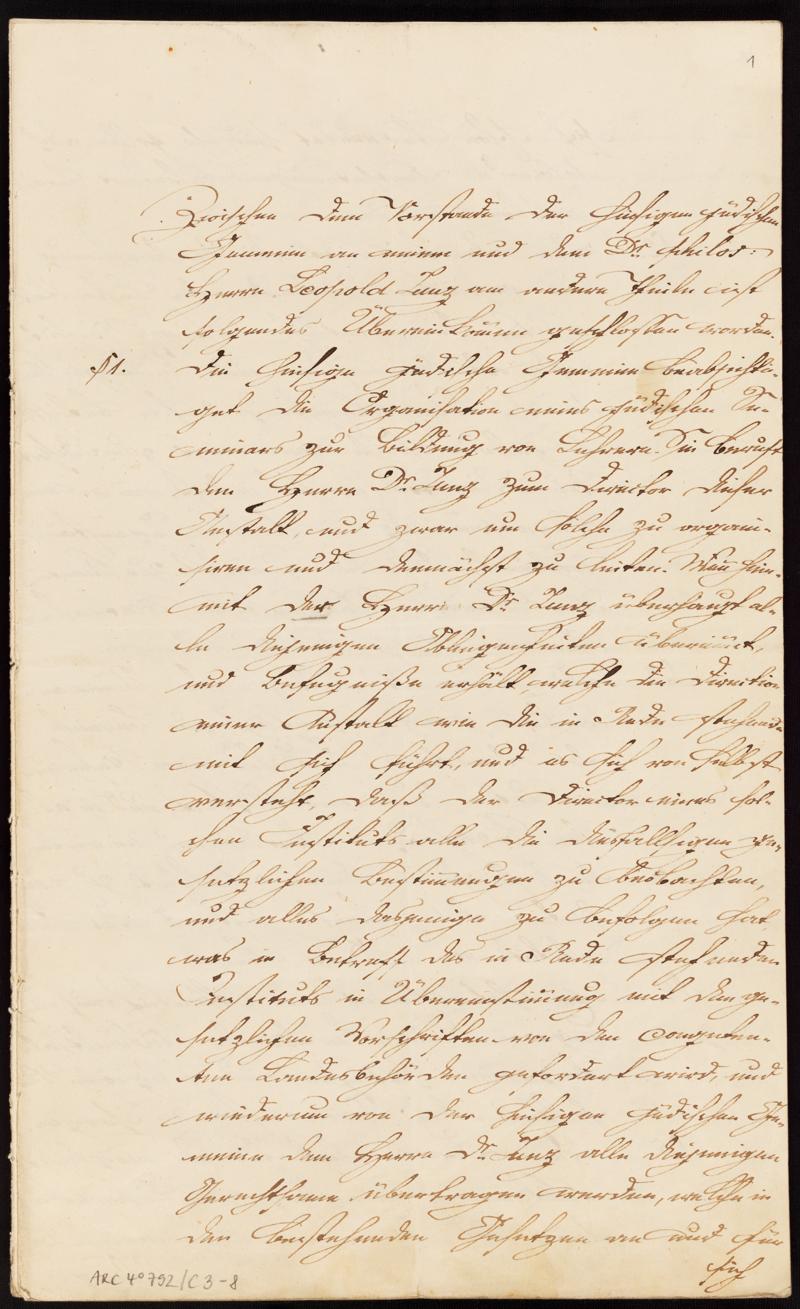 1
Zwischen dem Vorstande der hiesigen jüdischen
Gemeine an einem und dem Dr. philos:
Herrn Leopold Zunz am andern Theile ist
folgendes Übereinkommen geschlossen worden.
§1. Die hiesige jüdische Gemeine beabsichti-
get die Organisation eines jüdischen Se-
minars zur Bildung von Lehrern. Sie beruft
den Herrn Dr. Zunz zum Director dieser
Anstalt, und zwar um solche zu organi-
siren und demnächst zu leiten. Wenn hie-
mit der Herr Dr. Zunz überhaupt al-
le diejenigen Obliegenheiten übernimt,
und Befugnisse erhält welche die Direction
einer Anstalt wie die in Rede stehende
mit sich führt, und es sich von selbst
versteht, daß der Director eines sol-
chen Instituts alle die diesfälligen ge-
setzlichen Bestimmungen zu beobachten,
und alles dasjenige zu befolgen hat,
was in Betreff des in Rede stehenden
Instituts in Übereinstimmung mit den ge-
setzlichen Vorschriften von den competen-
ten Landesbehörden gefordert wird, und
wiederum von der hiesigen jüdischen Ge-
meine dem Herrn Dr. Zunz alle diejenigen
Gerechtsame übertragen werden, welche in
den bestehenden Gesetzen an und für
sich
ARC 4° 792/C 3-8